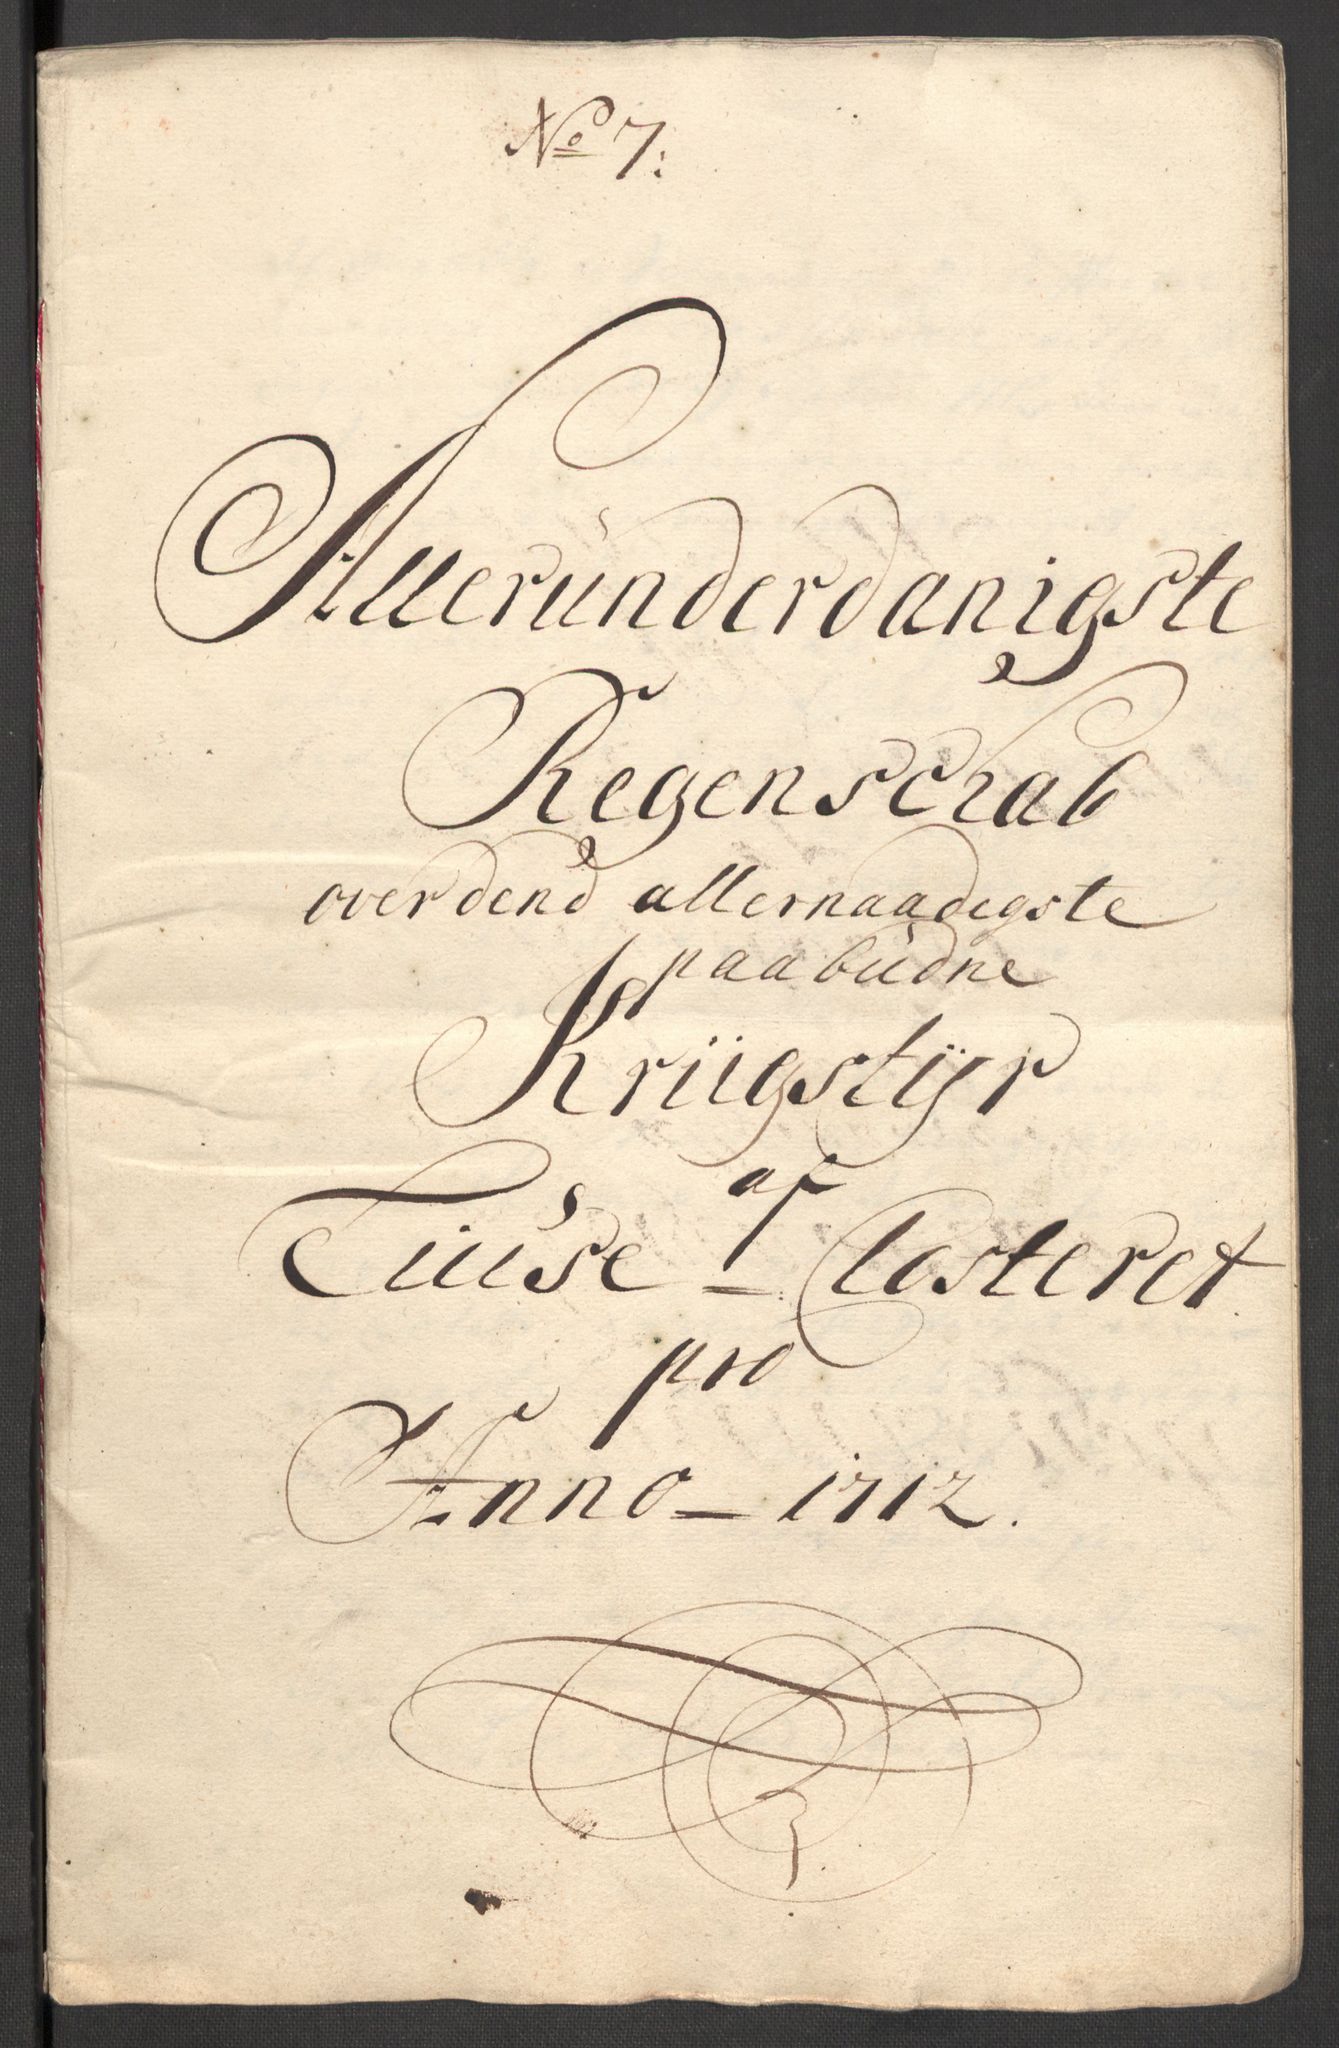 No 7:
Alleründerdanigste
Regenschab
over dend allernaadigste
paabüdne
Kriigstÿr
af
Lüüse-Closteret
pro
Anno 1712.